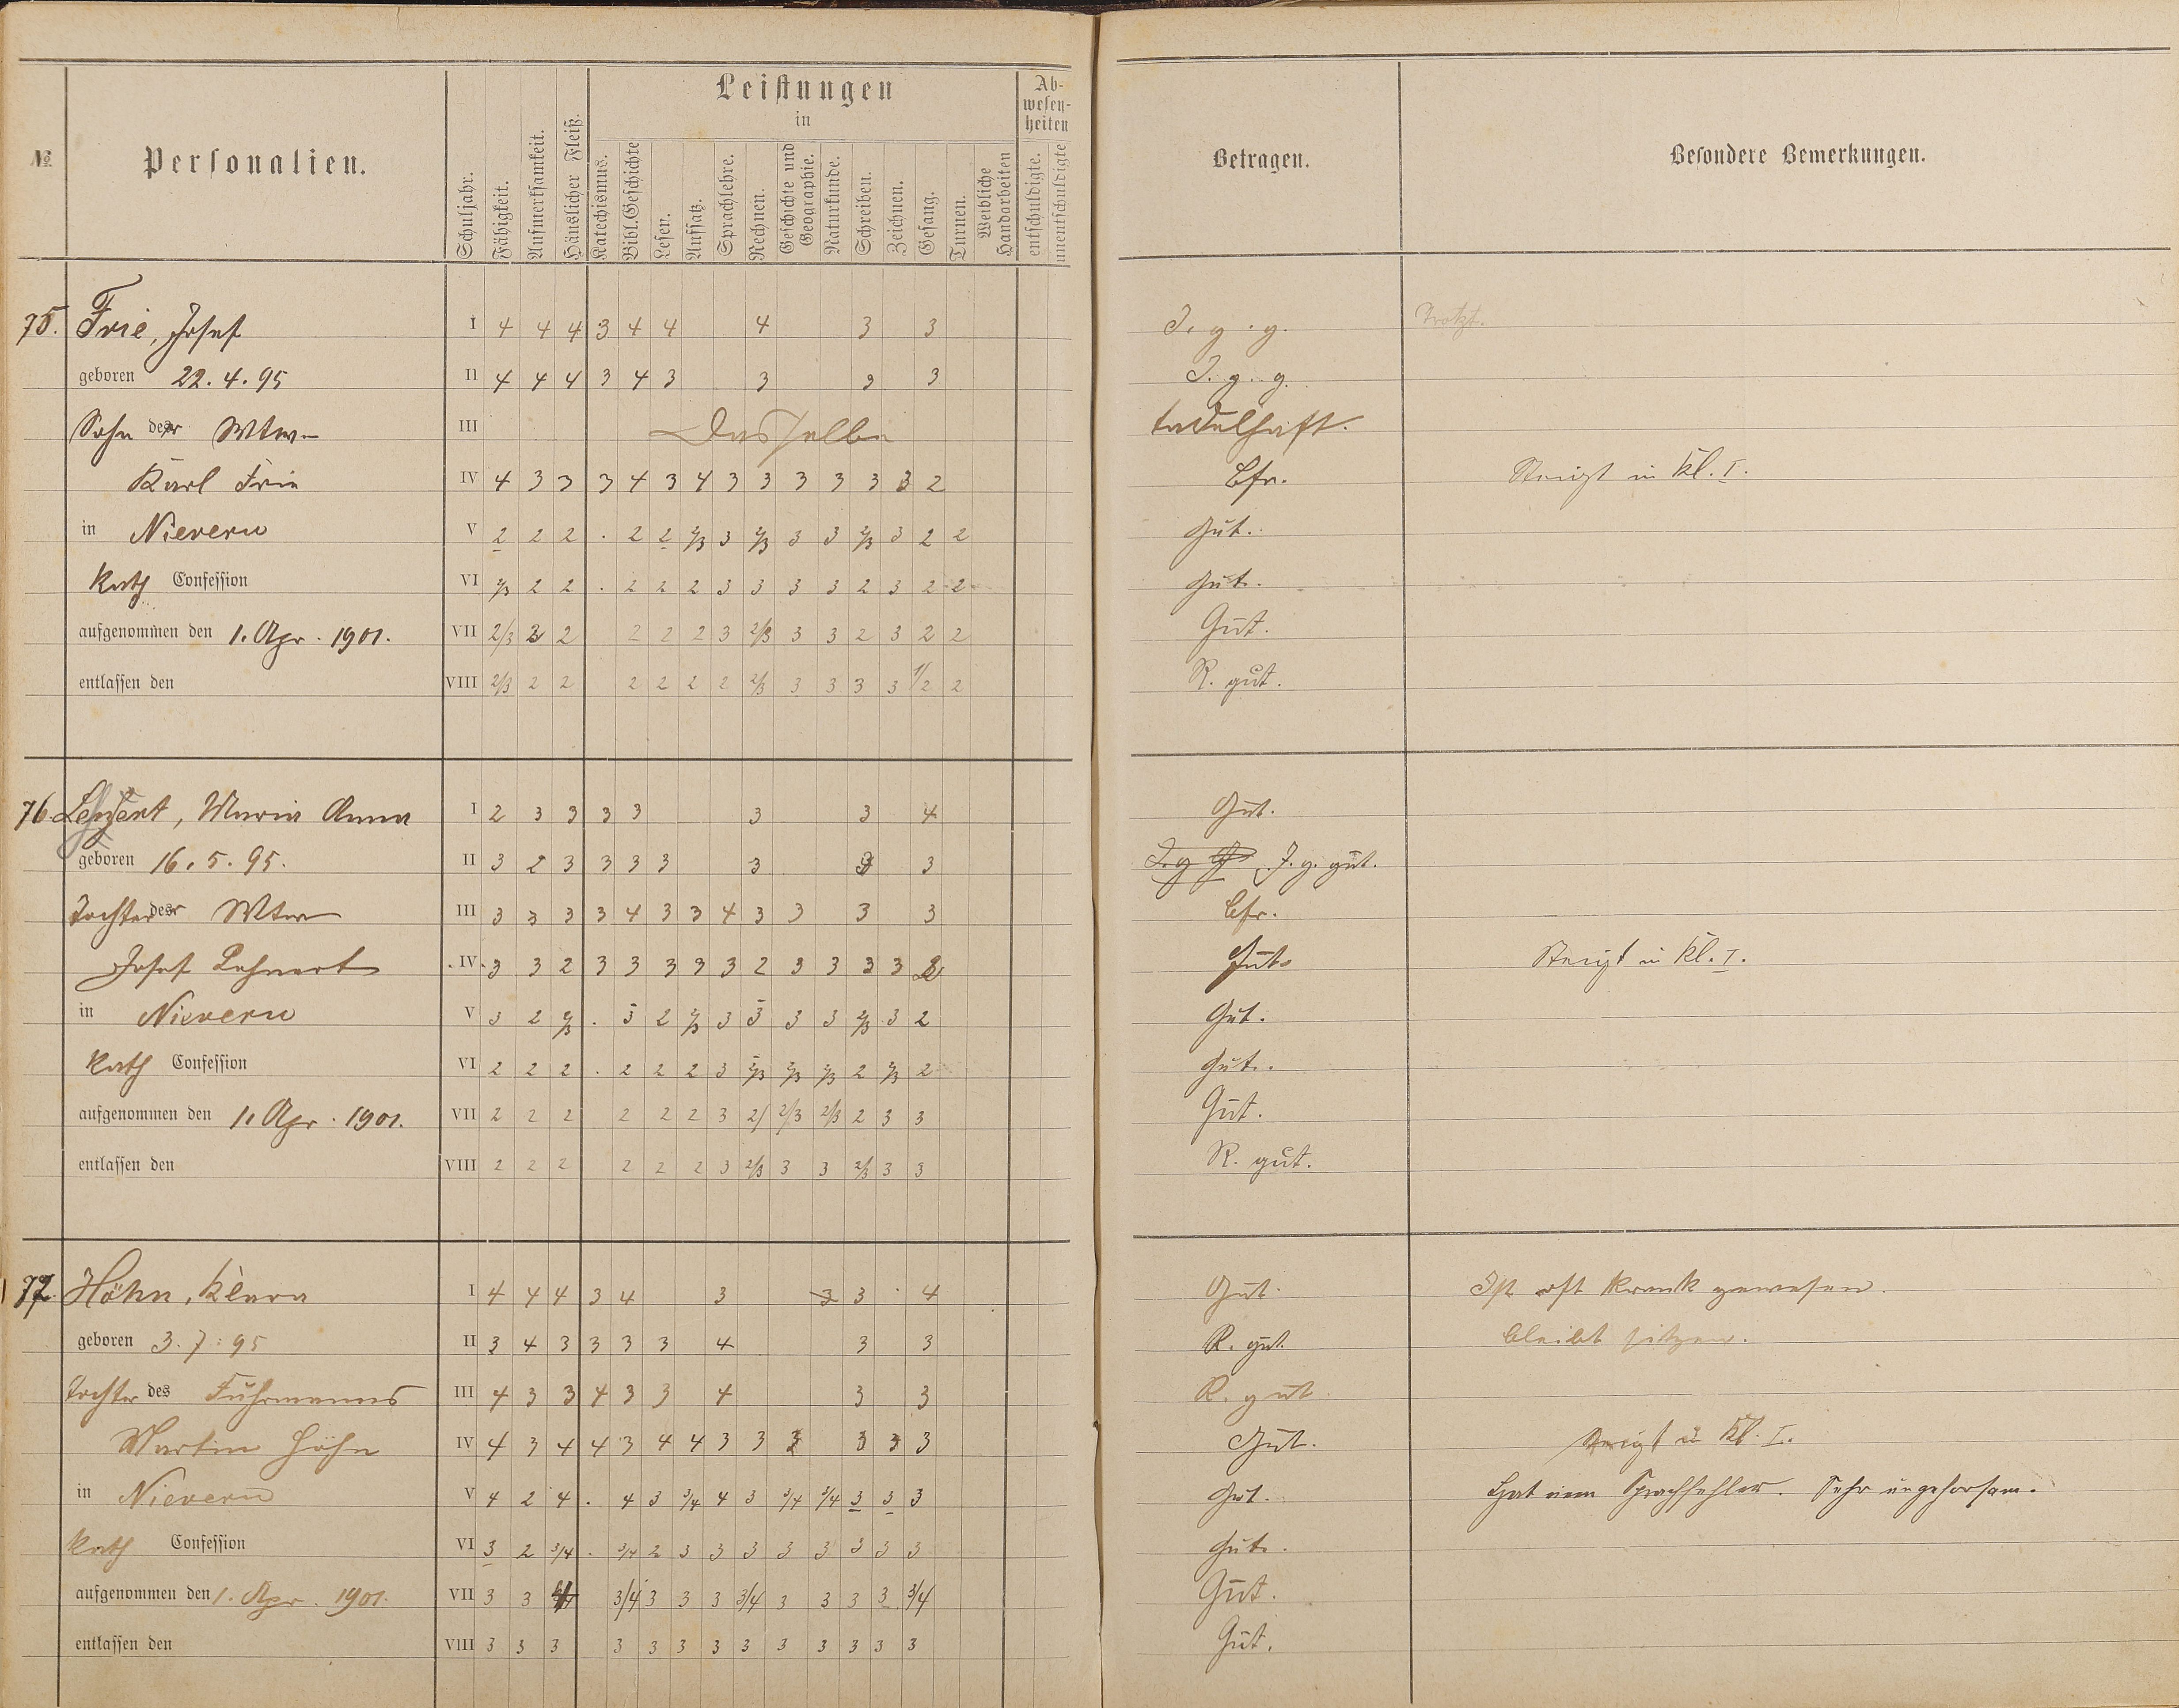 Leistungen
in
Ab-
wesen-
heiten
№ Personalien. Schuljahr. Fähigkeit. Aufmerksamkeit. Häuslicher Fleiß. Katechismus. Bibl. Geschichte Lesen. Aufsatz. Sprachlehre. Rechnen. Geschichte und Geographie. Naturkunde. Schreiben. Zeichnen. Gesang. Turnen. Weibliche Handarbeiten entschuldigte. unentschuldigte Betragen. Besondere Bemerkungen.
75. Frie, Josef I 4 4 4 3 4 4 4 3 3 J. g. g. Trotzt.
geboren 22. 4. 95 II 4 4 4 3 4 3 3 3 3 J. g. g.
Sohn der Wtw. III Dasselbe tadelhaft.
Karl Frie IV 4 3 3 3 4 3 4 3 3 3 3 3 3 2 Bfr. Steigt in Kl. I.
in Nievern V 2 2 2 . 2 2 2/3 3 2/3 3 3 2/3 3 2 2 Gut.
Kath Confession VI 2/3 2 2 . 2 2 2 3 3 3 3 2 3 2 2 Gut.
aufgenommen den 1. Apr. 1901. VII 2/3 2 2 2 2 2 3 2/3 3 3 2 3 2 2 Gut.
entlassen den VIII 2/3 2 2 2 2 2 2 2/3 3 3 3 3 1/2 2 R. gut.
76. Lehnert, Maria Anna I 2 3 3 3 3 3 3 4 Gut.
geboren 16. 5. 95. II 3 2 3 3 3 3 3 3 3 J. g. gut.
Tochter der Wtw III 3 3 3 3 4 3 3 4 3 3 3 3 Bfr.
Josef Lehnert IV 3 3 2 3 3 3 3 3 2 3 3 3 3 2 Gut. Steigt in Kl. I.
in Nievern V 3 2 2/3 . 3 2 2/3 3 3 3 3 2/3 3 2 Gut.
Kath Confession VI 2 2 2 . 2 2 2 3 2/3 2/3 2/3 2 2/3 2 Gut.
aufgenommen den 1. Apr. 1901. VII 2 2 2 2 2 2 3 2/ 2/3 2/3 2 3 3 Gut.
entlassen den VIII 2 2 2 2 2 2 3 2/3 3 3 2/3 3 3 R. gut.
77. Höhn, Klara I 4 4 4 3 4 3 3 3 . 4 Gut. Ist oft krank gewesen.
geboren 3. 7. 95 II 3 4 3 3 3 3 4 3 3 R. gut. bleibt sitzen.
Tochter des Fuhrmanns III 4 3 3 4 3 3 4 3 3 R. gut
Martin Höhn IV 4 3 4 4 3 4 4 3 3 3 3 3 3 Gut. Steigt in Kl. I.
in Nievern V 4 2 4 . 4 3 3/4 4 3 3/4 3/4 3 3 3 Gut. Hat einen Sprachfehler. Sehr ungehorsam.
Kath Confession VI 3 2 3/4 . 3/4 2 3 3 3 3 3 3 3 3 Gut.
aufgenommen den 1. Apr. 1901. VII 3 3 3/4 3 3 3 3/4 3 3 3 3 3/4 Gut.
entlassen den VIII 3 3 3 3 3 3 3 3 3 3 3 3 3 Gut.